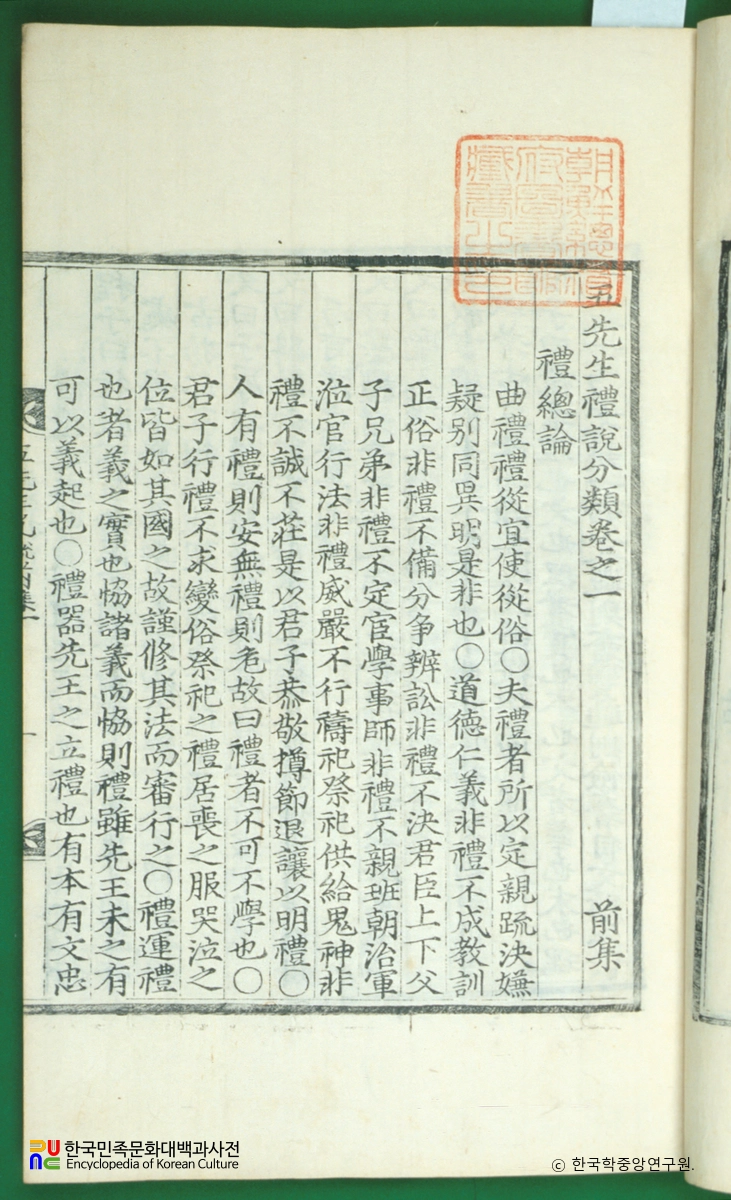 五先生禮說分類卷之一 前集
禮總論
曲禮禮從宜使從俗○夫禮者所以定親疏決嫌
疑别同異明是非也○道德仁義非禮不成教訓
正俗非禮不備分争辨訟非禮不決君臣上下父
子兄弟非禮不定宦學事師非禮不親班朝治軍
涖官行法非禮威嚴不行禱祀祭祀供給鬼神非
禮不誠不莊是以君子恭敬撙節退讓以明禮○
人有禮則安無禮則危故曰禮者不可不學也○
君子行禮不求變俗祭祀之禮居喪之服哭泣之
位皆如其國之故謹修其法而審行之○禮運禮
也者義之實也恊諸義而恊則禮雖先王未之有
可以義起也○禮器先王之立禮也有本有文忠
朝鮮總督府圖書館藏書之印
한국민족문화대백과사전
Encyclopedia of Korean Culture
© 한국학중앙연구원.